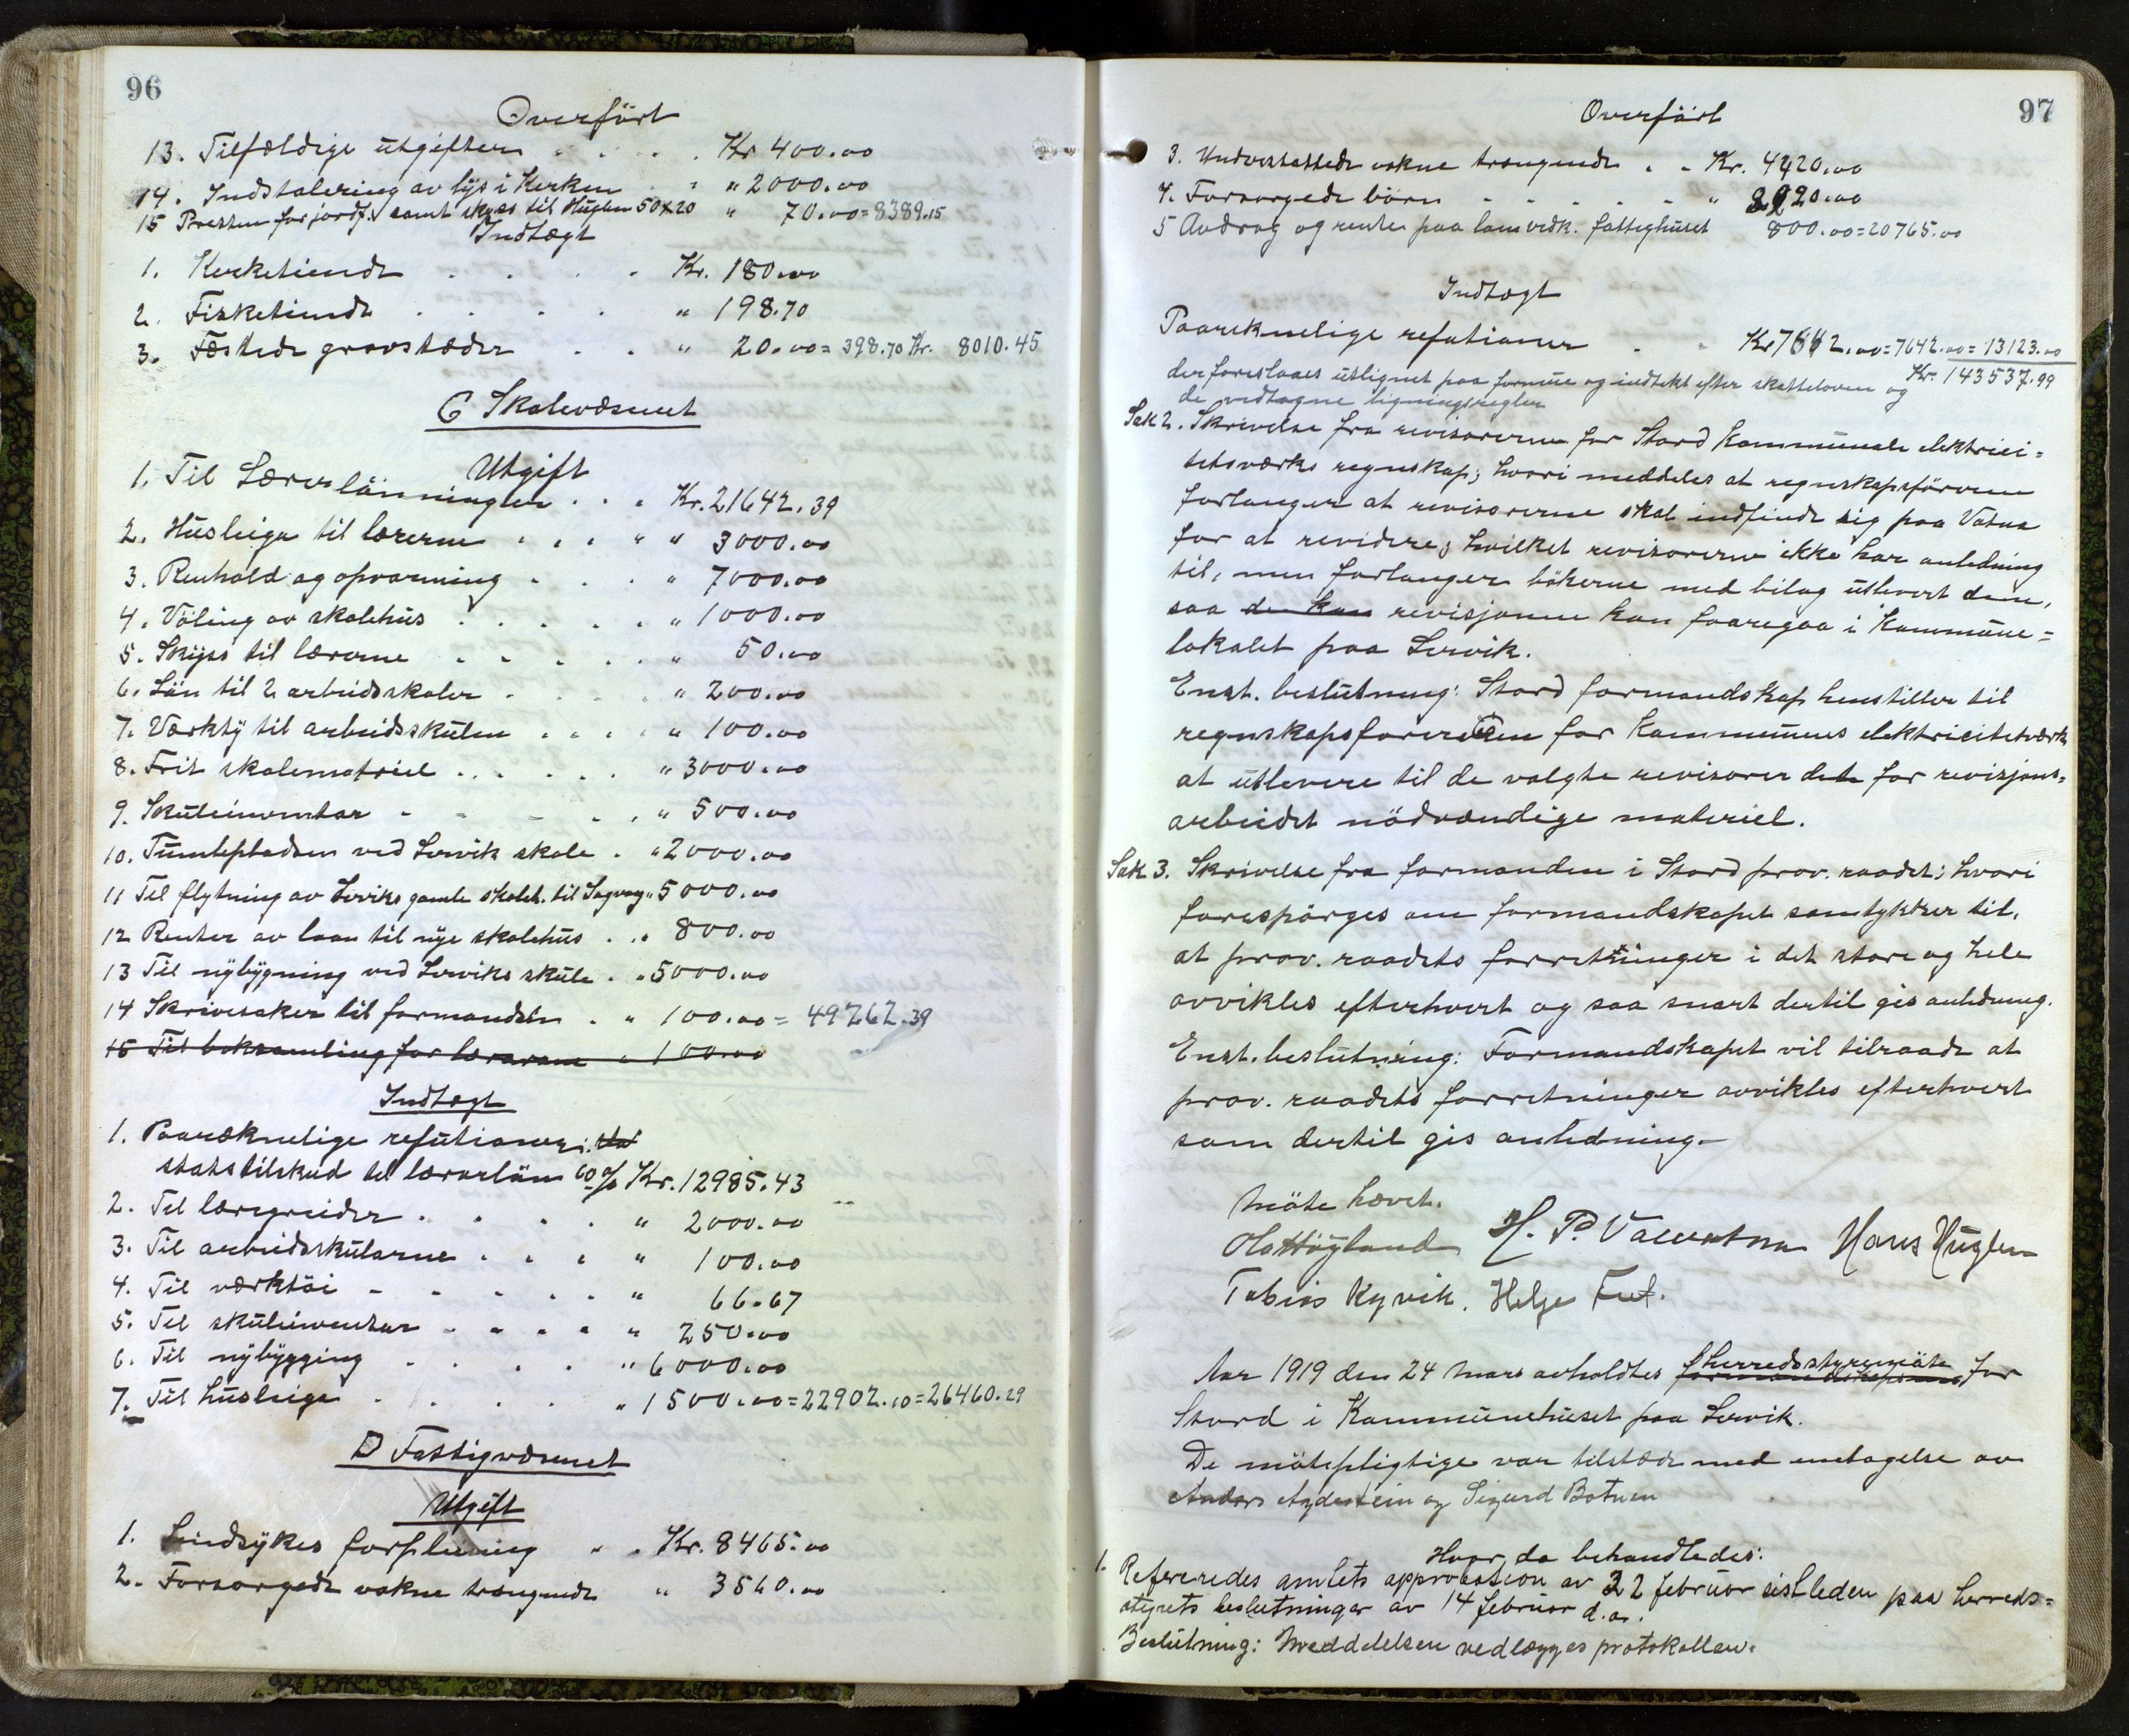 96
Overført
13. Tilfældige utgifter . . . . Kr 400.00
14. Indstalering av lys i Kerken . . " 2000.00
15 Presten for jordf. samt skyss til Huglen 50+20 " 70.00=8389.15
Indtægt
1. Kerketiende . . . . Kr. 180.00
2. Fisketiende . . . . " 198.70
3. Fæstede gravstæder . . " 20.00=398.70 Kr. 8010.45
C Skolevæsenet
Utgift
1. Til Lærerlønninger . . . Kr. 21642.39
2. Husleige til lærerne . . . " " 3000.00
3. Renhold og opvarming . . . " 7000.00
4. Vøling av skolehus . . . . . " 1000.00
5. Skyss til lærerne . . . . . " 50.00
6. Løn til 2 arbeidsskoler . . . . " 200.00
7. Værkty til arbeidsskulen . . . . " 100.00
8. Frit skolematriel . . . . . " 3000.00
9. Skuleinventar . . . . . " 500.00
10. Tumlepladsen ved Lervik skole . " 2000.00
11 Til flytning av Lerviks gamle skoleh. til Sagvåg " 5000.00
12 Renter av laan til nye skolehus . . " 800.00
13 Til nybygning ved Lerviks skule . " 5000.00
14 Skrivesaker til formanden . " 100.00 = 49262.39
15 Til boksamling for lærarane " 100.00
Indtægt
1. Paareknelige refutioner: Sta
statstilskud til lærerløn 60% Kr. 12985.43
2. Til læregreider . . . . " 2000.00
3. Til arbeidsskularne . . . " 100.00
4. Til værktøi . . . . . " 66.67
5. Til skuleinventar . . . . " 250.00
6. Til nybygging . . . . " 6000.00
7. Til husleige . . . . " 1500.00=22902.10=26460.29
D Fattigvæsenet
Utgift
1. Sindsykes forpleining . . Kr. 8465.00
2. Forsørgede voksne trængende " 3560.00
97
Overført
3. Understøttede voksne trængende . . Kr. 4420.00
4. Forsørgede børn . . . . . " 20.00
5 Avdrag og renter paa laan vedk. fattighuset 800.00=20765.00
Indtægt
Paareknelige refutioner . . Kr 7642.00=7642.00=13123.00
Kr. 143537.99
der foreslaaes utlignet paa formue og indtekt efter skatteloven og
de vedtagne ligningsregler
Sak 2. Skrivelse fra revisorerne for Stord kommunale elektrici=
tetsværks regnskap; hvori meddeles at regnskapsføreren
forlanger at revisorerne skal indfinde sig paa Vatna
for at revidere; hvilket revisorerne ikke har anledning
til, men forlanger bøkerne med bilag utlevert dem,
saa de kan revisjonen kan foaregaa i Kommune=
lokalet paa Lervik.
Enst. beslutning: Stord formandskap henstiller til
regnskapsføreren for kommunens elektricitetværk
at utlevere til de valgte revisorer det for revisjons=
arbeidet nødvændige materiel.
Sak 3. Skrivelse fra formanden i Stord prov. raadet; hvori
forespørges om formandskapet samtykker til,
at prov. raadets forretninger i det store og hele
avvikles efterhvert og saa snart dertil gis anledning.
Enst. beslutning: Formandskapet vil tilraade at
prov. raadets forretninger avvikles efterhvert
som dertil gis anledning.
Møte hævet.
Ola Høyland H. P. Valvatna Hans Huglen
Tobias Kyvik. Helge Tuf.
Aar 1919 den 24 mars avholdtes formandskapsmø herredsstyremøte for
Stord i Kommunehuset paa Lervik.
De møtepligtige var tilstæde med undtagelse av
Anders Agdestein og Sigurd Botnen
Hvor da behandledes:
1. Refereredes amtets approbation av 22 februar sistleden paa herreds=
styrets beslutninger av 14 februar d.a.
Beslutning: Meddelelsen vedlægges protokollen.